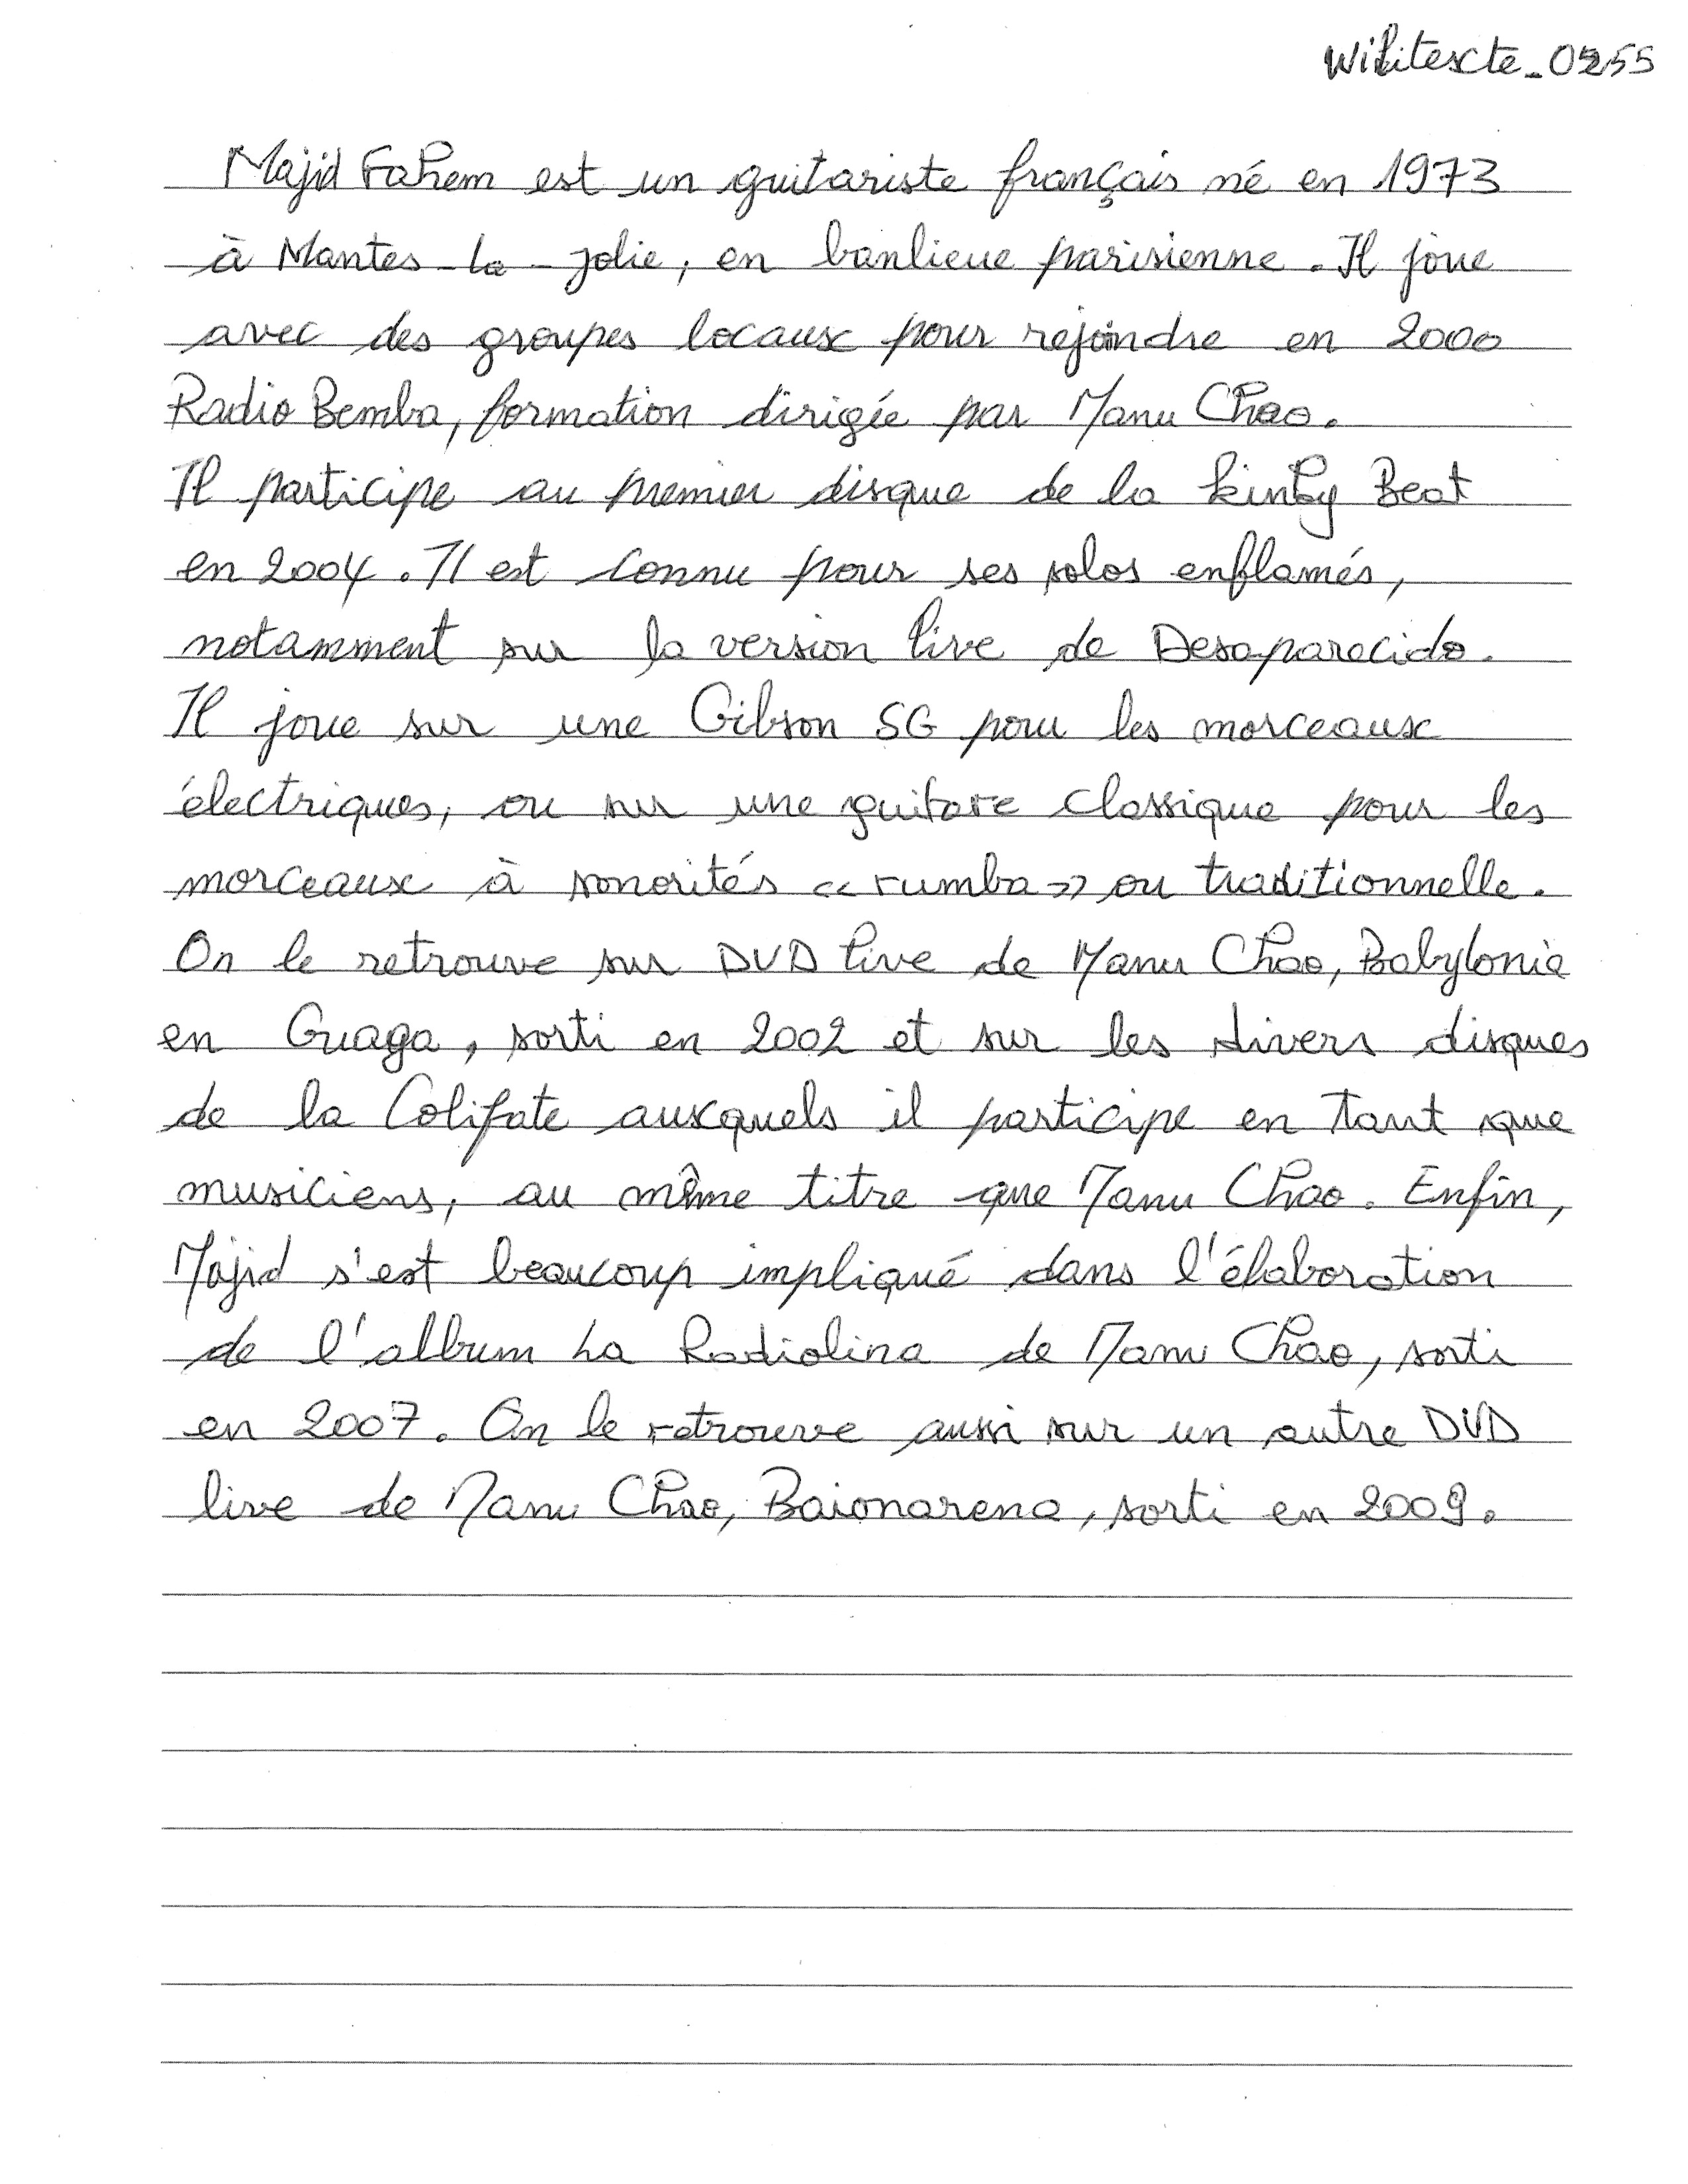 Wikitexte_0255
Majid Fahem est un guitariste français né en 1973
à Mantes-la-Jolie, en banlieue parisienne. Il joue
avec des groupes locaux pour rejoindre en 2000
Radio Bemba, formation dirigée par Manu Chao.
Il participe au premier disque de la Kinky Beat
en 2004. Il est connu pour ses solos enflamés,
notamment sur la version live de Desaparecido.
Il joue sur une Gibson SG pour les morceaux
électriques, ou sur une guitare classique pour les
morceaux à sonorités « rumba » ou traditionnelle.
On le retrouve sur DVD live de Manu Chao, Babylonia
en Guaga, sorti en 2002 et sur les divers disques
de la Colifate auxquels il participe en tant que
musiciens, au même titre que Manu Chao. Enfin,
Majid s'est beaucoup impliqué dans l'élaboration
de l'album La Radiolina de Manu Chao, sorti
en 2007. On le retrouve aussi sur un autre DVD
live de Manu Chao, Baionarena, sorti en 2009.